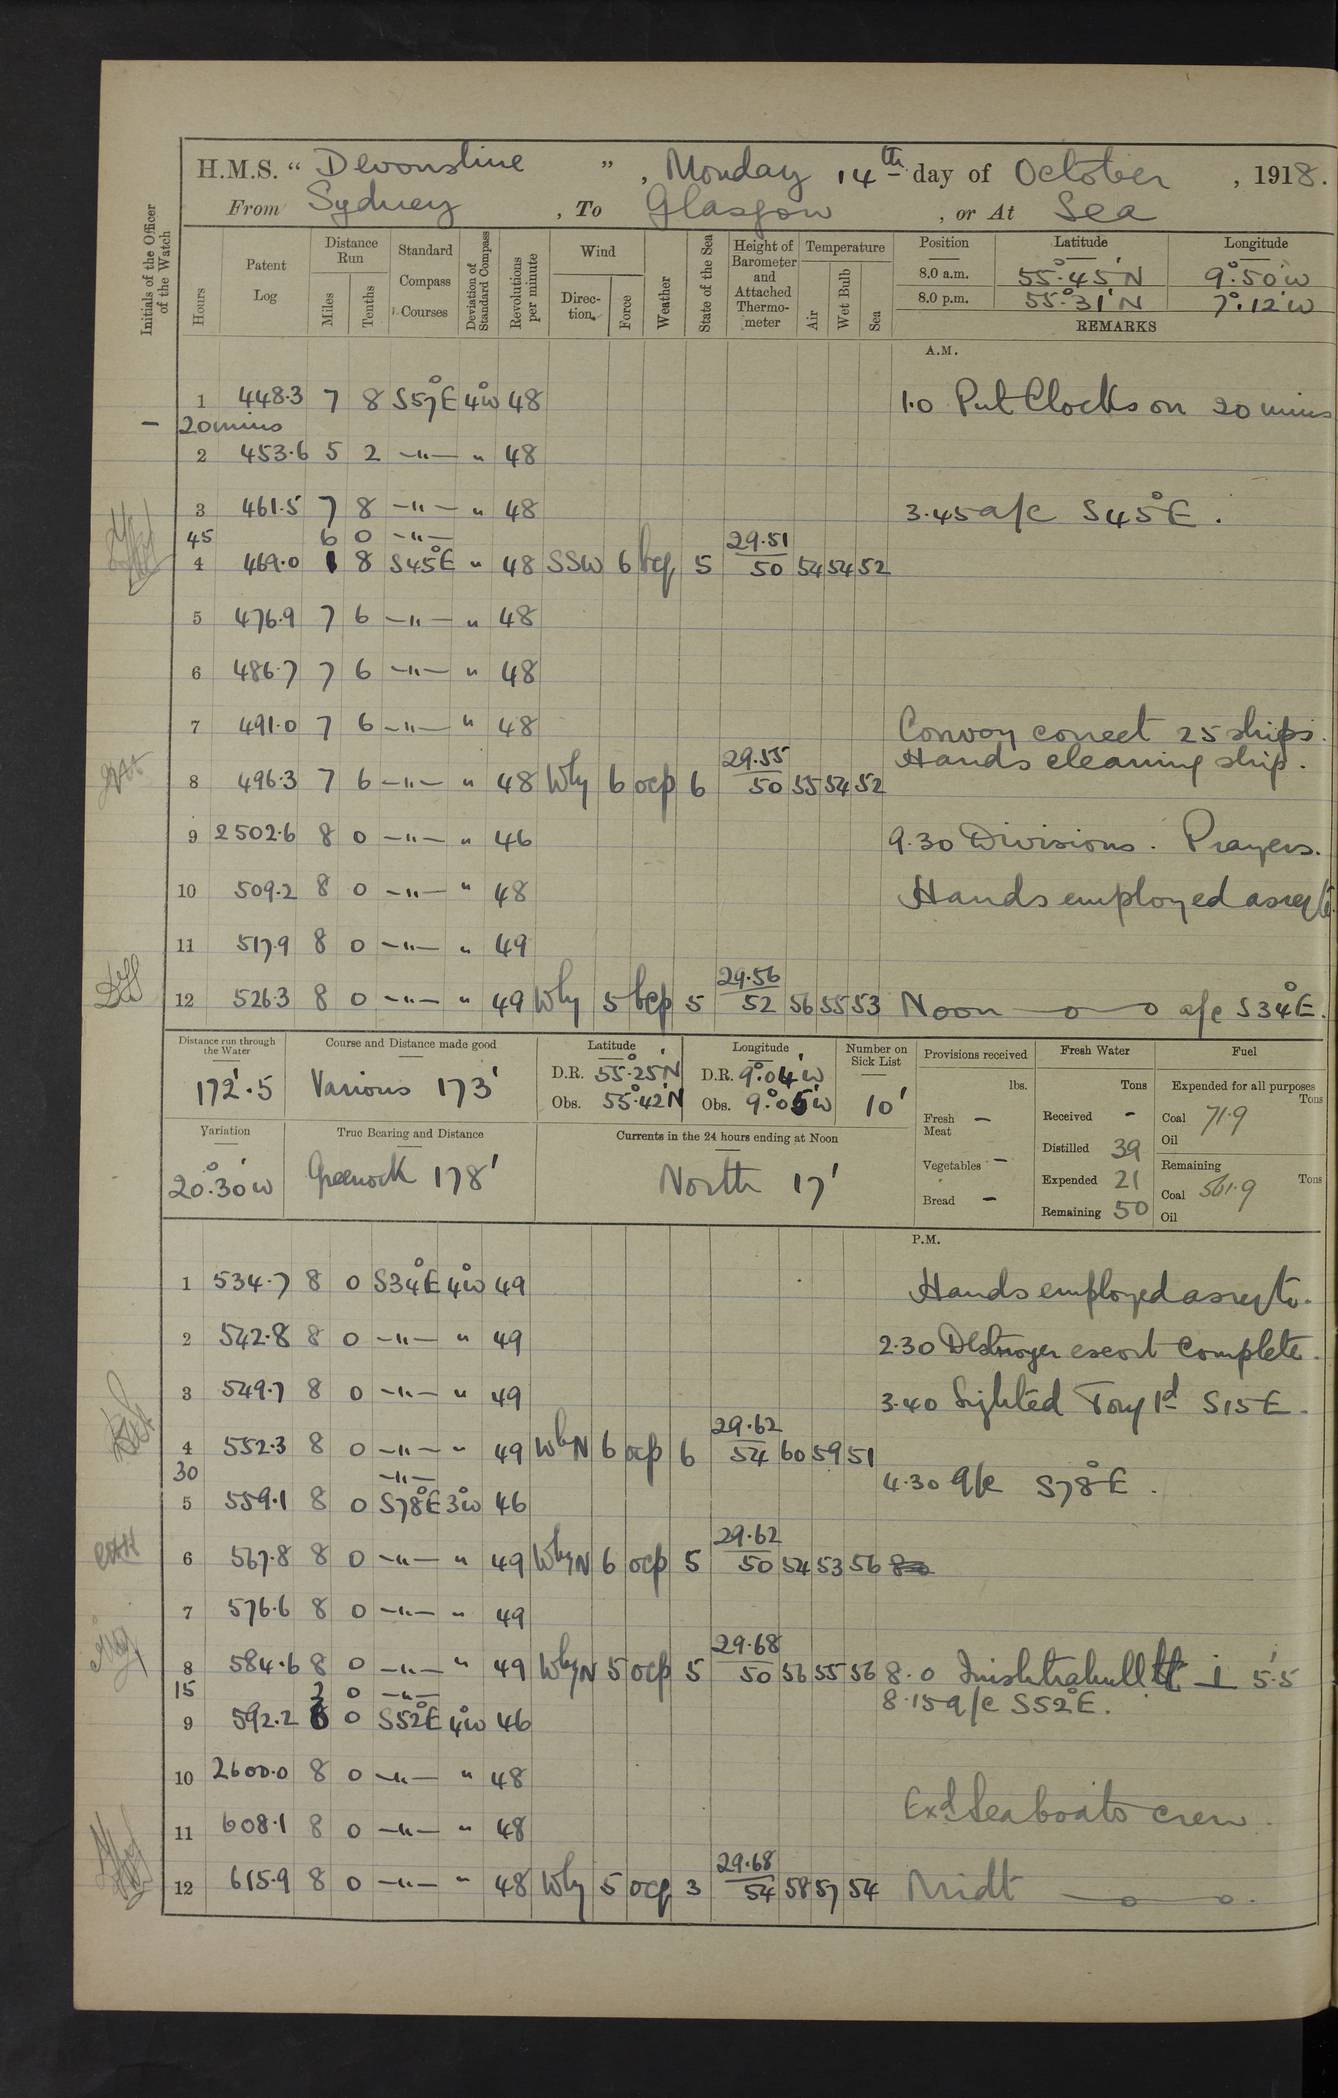 H.M.S. “ Devonshire ”, Monday 14th day of October, 1918.
From Sydney, To Glasgow, or At Sea
Initials of the Officer of the Watch
Hours Patent Log Distance Run Miles Tenths Standard Compass Courses Deviation of Standard Compass Revolutions per minute Wind Direction. Force Weather State of the Sea Height of Barometer and Attached Thermometer Temperature Air Wet Bulb Sea Position Latitude Longitude
8.0 a.m. 55°.45'N 9°.50'W
8.0 p.m. 55°.31'N 7°.12'W
REMARKS
A.M.
1 448.3 7 8 S57°E 4°W 48 1.0 Put Clocks on 20 mins
- 20 mins
2 453.6 5 2 —"— " 48
3 461.5 7 8 —"— " 48 3.45 a/c S45°E.
45 6 0 —"—
4 469.0 1 8 S45°E " 48 SSW 6 bcq 5 29.51 50 54 54 52
5 476.9 7 6 —"— " 48
6 486.7 7 6 —"— " 48
7 491.0 7 6 —"— " 48 Convoy correct 25 ships.
Hands cleaning ship.
8 496.3 7 6 —"— " 48 Wly 6 ocp 6 29.55 50 55 54 52
9 2502.6 8 0 —"— " 46 9.30 Divisions. Prayers.
10 509.2 8 0 —"— " 48 Hands employed as req'te
11 517.9 8 0 —"— " 49
12 526.3 8 0 —"— " 49 Wly 5 bcp 5 29.56 52 56 55 53 Noon —o—o a/c S34°E.
Distance run through the Water Course and Distance made good Latitude Longitude Number on Sick List Provisions received Fresh Water Fuel
172'.5 Various 173' D.R. 55°.25'N D.R. 9°.04'W 10'
Obs. 55°.42'N Obs. 9°.05'W
lbs. Tons Expended for all purposes Tons
Fresh Meat — Received - Coal 71.9
Oil
Variation True Bearing and Distance Currents in the 24 hours ending at Noon
20°.30'W Greenock 178' North 17'
Vegetables — Distilled 39 Remaining Tons
Expended 21 Coal 561.9
Bread — Remaining 50 Oil
P.M.
1 534.7 8 0 S34°E 4°W 49 Hands employed as req'te.
2 542.8 8 0 —"— " 49 2.30 Destroyer escort complete.
3 549.7 8 0 —"— " 49 3.40 Sighted Tory Id S15E.
4 552.3 8 0 —"— " 49 WbN 6 ocp 6 29.62 54 60 59 51
30 —"— 4.30 a/c S78°E.
5 559.1 8 0 S78°E 3°W 46
6 567.8 8 0 —"— " 49 WbyN 6 ocp 5 29.62 50 54 53 56
7 576.6 8 0 —"— " 49
8 584.6 8 0 —"— " 49 WbyN 5 ocp 5 29.68 50 56 55 56 8.0 Inishtrahull Lt ⊥ 5.5'
15 2 0 —"— 8.15 a/c S52°E.
9 592.2 6 0 S52°E 4°W 46
10 2600.0 8 0 —"— " 48
Exd Seaboats crew.
11 608.1 8 0 —"— " 48
12 615.9 8 0 —"— " 48 Wly 5 ocq 3 29.68 54 58 57 54 Midt —o—o.